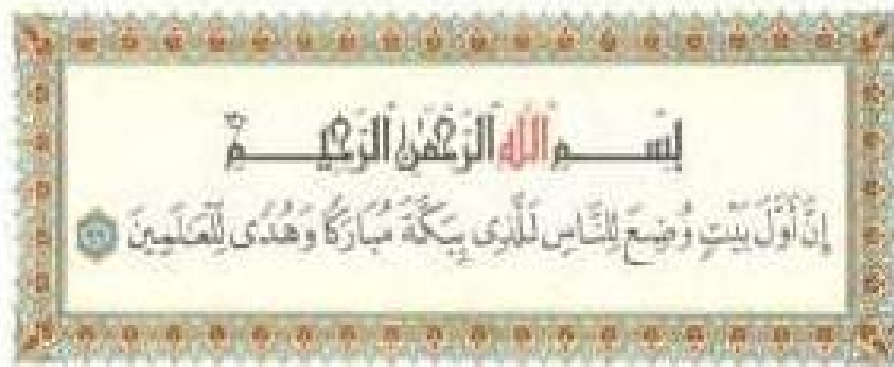 بِسْمِ ٱللَّهِ ٱلرَّحْمَٰنِ ٱلرَّحِيمِ
إِنَّ أَوَّلَ بَيْتٍ وُضِعَ لِلنَّاسِ لَلَّذِى بِبَكَّةَ مُبَارَكًا وَهُدًى لِّلْعَٰلَمِينَ